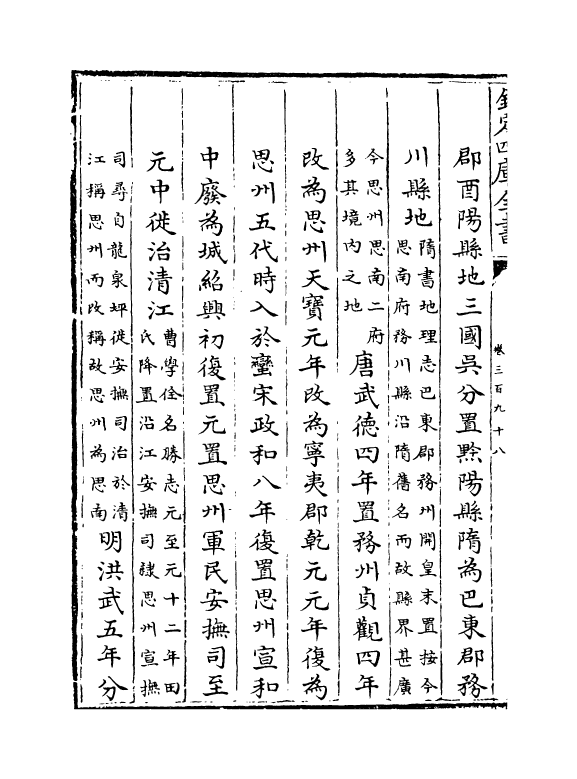 欽定四庫全書
卷三百九十八
郡酉陽縣地三國吳分置黔陽縣隋為巴東郡務
川縣地
隋書地理志巴東郡務州開皇末置按今
思南府務川縣沿隋舊名而故縣界甚廣
今思州思南二府
多其境内之地
唐武德四年置務州貞觀四年
改為思州天寶元年改為寧夷郡乾元元年復為
思州五代時入於蠻宋政和八年復置思州宣和
中廢為城紹興初復置元置思州軍民安撫司至
元中徙治清江
曹學佺名勝志元至元十二年田
氏降置沿江安撫司隸思州宣撫
司尋自龍泉坪徙安撫司治於清
江稱思州而改稱故思州為思南
明洪武五年分